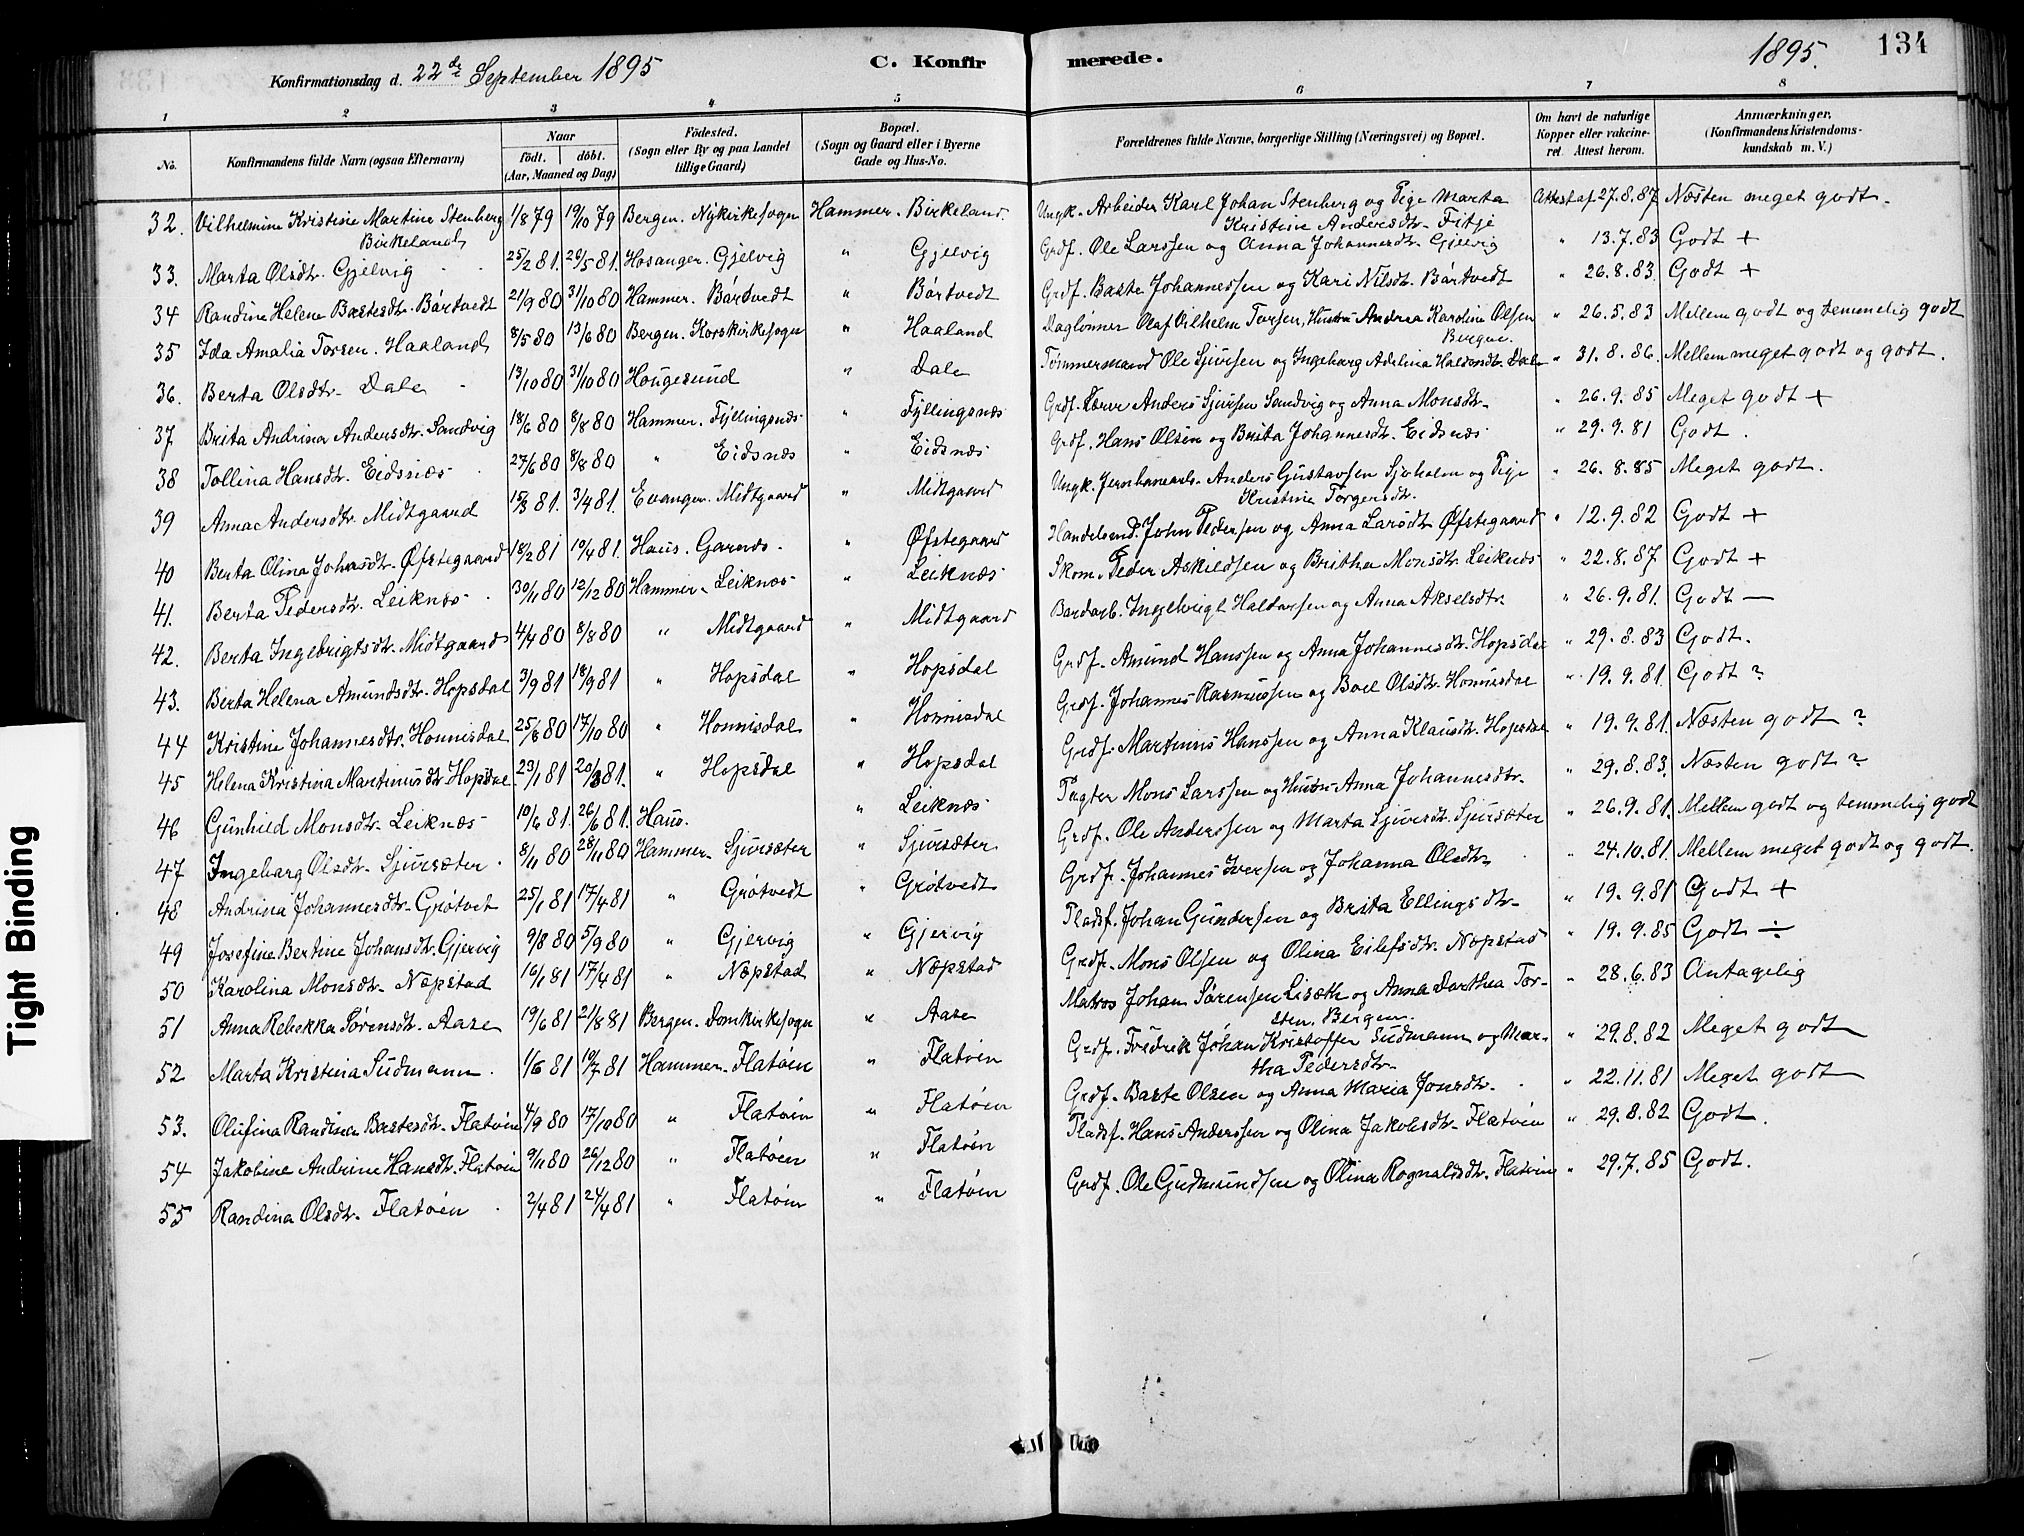 134
1895.
Konfirmationsdag d. 22de September 1895
C. Konfirmerede.
1 2 3 4 5 6 7 8
No.
Konfirmandens fulde Navn (ogsaa Efternavn)
Naar
födt. döbt.
(Aar, Maaned og Dag)
Födested.
(Sogn eller By og paa Landet
tillige Gaard)
Bopæl.
(Sogn og Gaard eller i Byerne
Gade og Hus-No.
Forældrenes fulde Navne, borgerlige Stilling (Næringsvei) og Bopæl.
Om havt de naturlige
Kopper eller vakcine-
ret. Attest herom.
Anmærkninger.
(Konfirmandens Kristendoms-
kundskab m. V.)
32. Vilhelmine Kristine Martine Stenberg 1/8 79 19/10 79 Bergen. Nykirkesogn Hammer. Birkeland. Ungk. Arbeider Karl Johan Stenberg og Pige Marta Attest af 27.8.87 Næsten meget godt.
Birkeland Kristine Andersdtr. Fitje
33. Marta Olsdtr. Gjelvig 25/2 81. 29/5 81. Hosanger. Gjelvig " Gjelvig Grdf. Ole Larssen og Anna Johannesdtr. Gjelvig " 13.7.83 Godt +
34 Randine Helene Bastesdtr. Börtvedt 21/9 80 31/10 80 Hammer. Börtvedt " Börtvedt Grdf. Baste Johannessen og Kari Nilsdt. Börtvedt " 26.8.83. Godt +
35 Ida Amalia Torsen. Haaland 8/5 80 13/6 80 Bergen. Korskirkesogn " Haaland Daglønner Olaf Vilhelm Torsen, Hustru Andrea Karoline Olsen " 26.5.83 Mellem godt og temmelig godt
Bergen.
36. Berta Olsdtr. Dale 13/10 80 31/10 80 Hougesund " Dale Tømmermand Ole Sjursen og Ingeborg Adelina Haldorsdtr. Dale " 31.8.86. Mellem meget godt og godt.
37 Brita Andrina Andersdtr. Sandvig 18/6 80 8/8 80 Hammer. Fyllingsnes " Fyllingsnæs Grdf. Lærer Anders Sjursen Sandvig og Anna Monsdtr. " 26.9.85 Meget godt +
38 Tollina Hansdtr. Eidsnæs 27/6 80 8/8 80 " Eidsnæs " Eidsnæs Grdf. Hans Olsen og Brita Johannesdtr. Eidsnæs " 29.9.81 Godt.
39 Anna Andersdtr. Midtgaard 15/3 81. 3/4 81. Evanger. Midtgaard " Midtgaard Ungk. Jernbanearb. Anders Gustavsen Sjøholm og Pige " 26.8.85 Meget godt.
Kristine Torgersdtr.
40 Berta Olina Johnsdtr. Øfstegaard 18/2 81 10/4 81. Haus. Garnæs. " Øfstegaard Handelsmd. John Pedersen og Anna Larsdtr. Øfstegaard " 12.9.82 Godt +
41. Berta Pedersdtr. Leiknæs 30/11 80 12/12 80 Hammer. Leiknæs " Leiknæs Skom. Peder Askildsen og Britha Monsdtr. Leiknæs " 22.8.87 Godt +
42. Berta Ingebrigtsdtr. Midtgaard 4/4 80 8/8 80 " Midtgaard " Midtgaard Bordarb. Ingebrigt Haldorsen og Anna Akselsdtr. " 26.9.81. Godt —
43. Berta Helena Amundsdtr. Hopsdal 3/9 81 18/9 81 " Hopsdal " Hopsdal Grdf. Amund Hanssen og Anna Johannesdtr. Hopsdal " 29.8.83 Godt.
44 Kristine Johannesdtr. Honnisdal 25/8 80 17/10 80 " Honnisdal " Honnisdal Grdf. Johannes Rasmussen og Boel Olsdtr. Honnisdal " 19.9.81. Godt ?
45 Helena Kristina Martinusdtr. Hopsdal 23/1 81 20/3 81. " Hopsdal " Hopsdal Grdf. Martinus Hanssen og Anna Klausdtr. Hopsdal " 19.9.81. Næsten godt ?
46 Gunhild Monsdtr. Leiknæs 10/6 81. 26/6 81. Haus. " Leiknæs Pagter Mons Larssen og Hustru Anna Johannesdtr. " 29.8.83. Næsten godt ?
47 Ingeborg Olsdtr. Sjursæter 8/11 80 28/11 80 Hammer. Sjursæter " Sjursæter Grdf. Ole Anderssen og Marta Sjursdtr. Sjursæter " 26.9.81. Mellem godt og temmelig godt
48 Andrina Johannesdtr. Grötvet 25/1 81 17/4 81 " Grötvedt " Grötvedt Grdf. Johannes Iversen og Johanna Olsdtr. " 24.10.81. Mellem meget godt og godt.
49 Josefine Bertine Johansdtr. Gjervig 9/8 80 5/9 80 " Gjervig " Gjervig Pladsf. Johan Gundersen og Brita Ellingsdtr. " 19.9.81 Godt +
50 Karolina Monsdtr. Næpstad 16/1 81 17/4 81 " Næpstad " Næpstad Grdf. Mons Olsen og Olina Eilefsdtr. Næpstad " 19.9.85 Godt ÷
51 Anna Rebekka Sørensdtr. Aase 19/6 81 21/8 81 Bergen. Domkirkesogn " Aase Matros Johan Sørensen Liseth og Anna Dorthea Tor- " 28.6.83 Antagelig
sten. Bergen.
52 Marta Kristina Sudmann. 1/6 81 10/7 81 Hammer. Flatöen " Flatöen Grdf. Fredrik Johan Kristoffer Sudmann og Mar- " 29.8.82 Meget godt
tha Pedersdtr.
53. Olufina Randina Bastesdtr. Flatöen 4/9 80 17/10 80 " Flatöen " Flatöen Grdf. Baste Olsen og Anna Maria Jonsdtr. " 22.11.81 Meget godt
54 Jakobine Andrine Hansdtr. Flatöen 9/11 80 26/12 80 " Flatöen " Flatöen Pladsf. Hans Anderssen og Olina Jakobsdtr. Flatöen " 29.8.82 Godt.
55 Randina Olsdtr. Flatöen 2/4 81 24/4 81 " Flatöen " Flatöen Grdf. Ole Gudmundsen og Olina Rognaldsdtr. Flatöen " 29.7.85 Godt.
Tight Binding